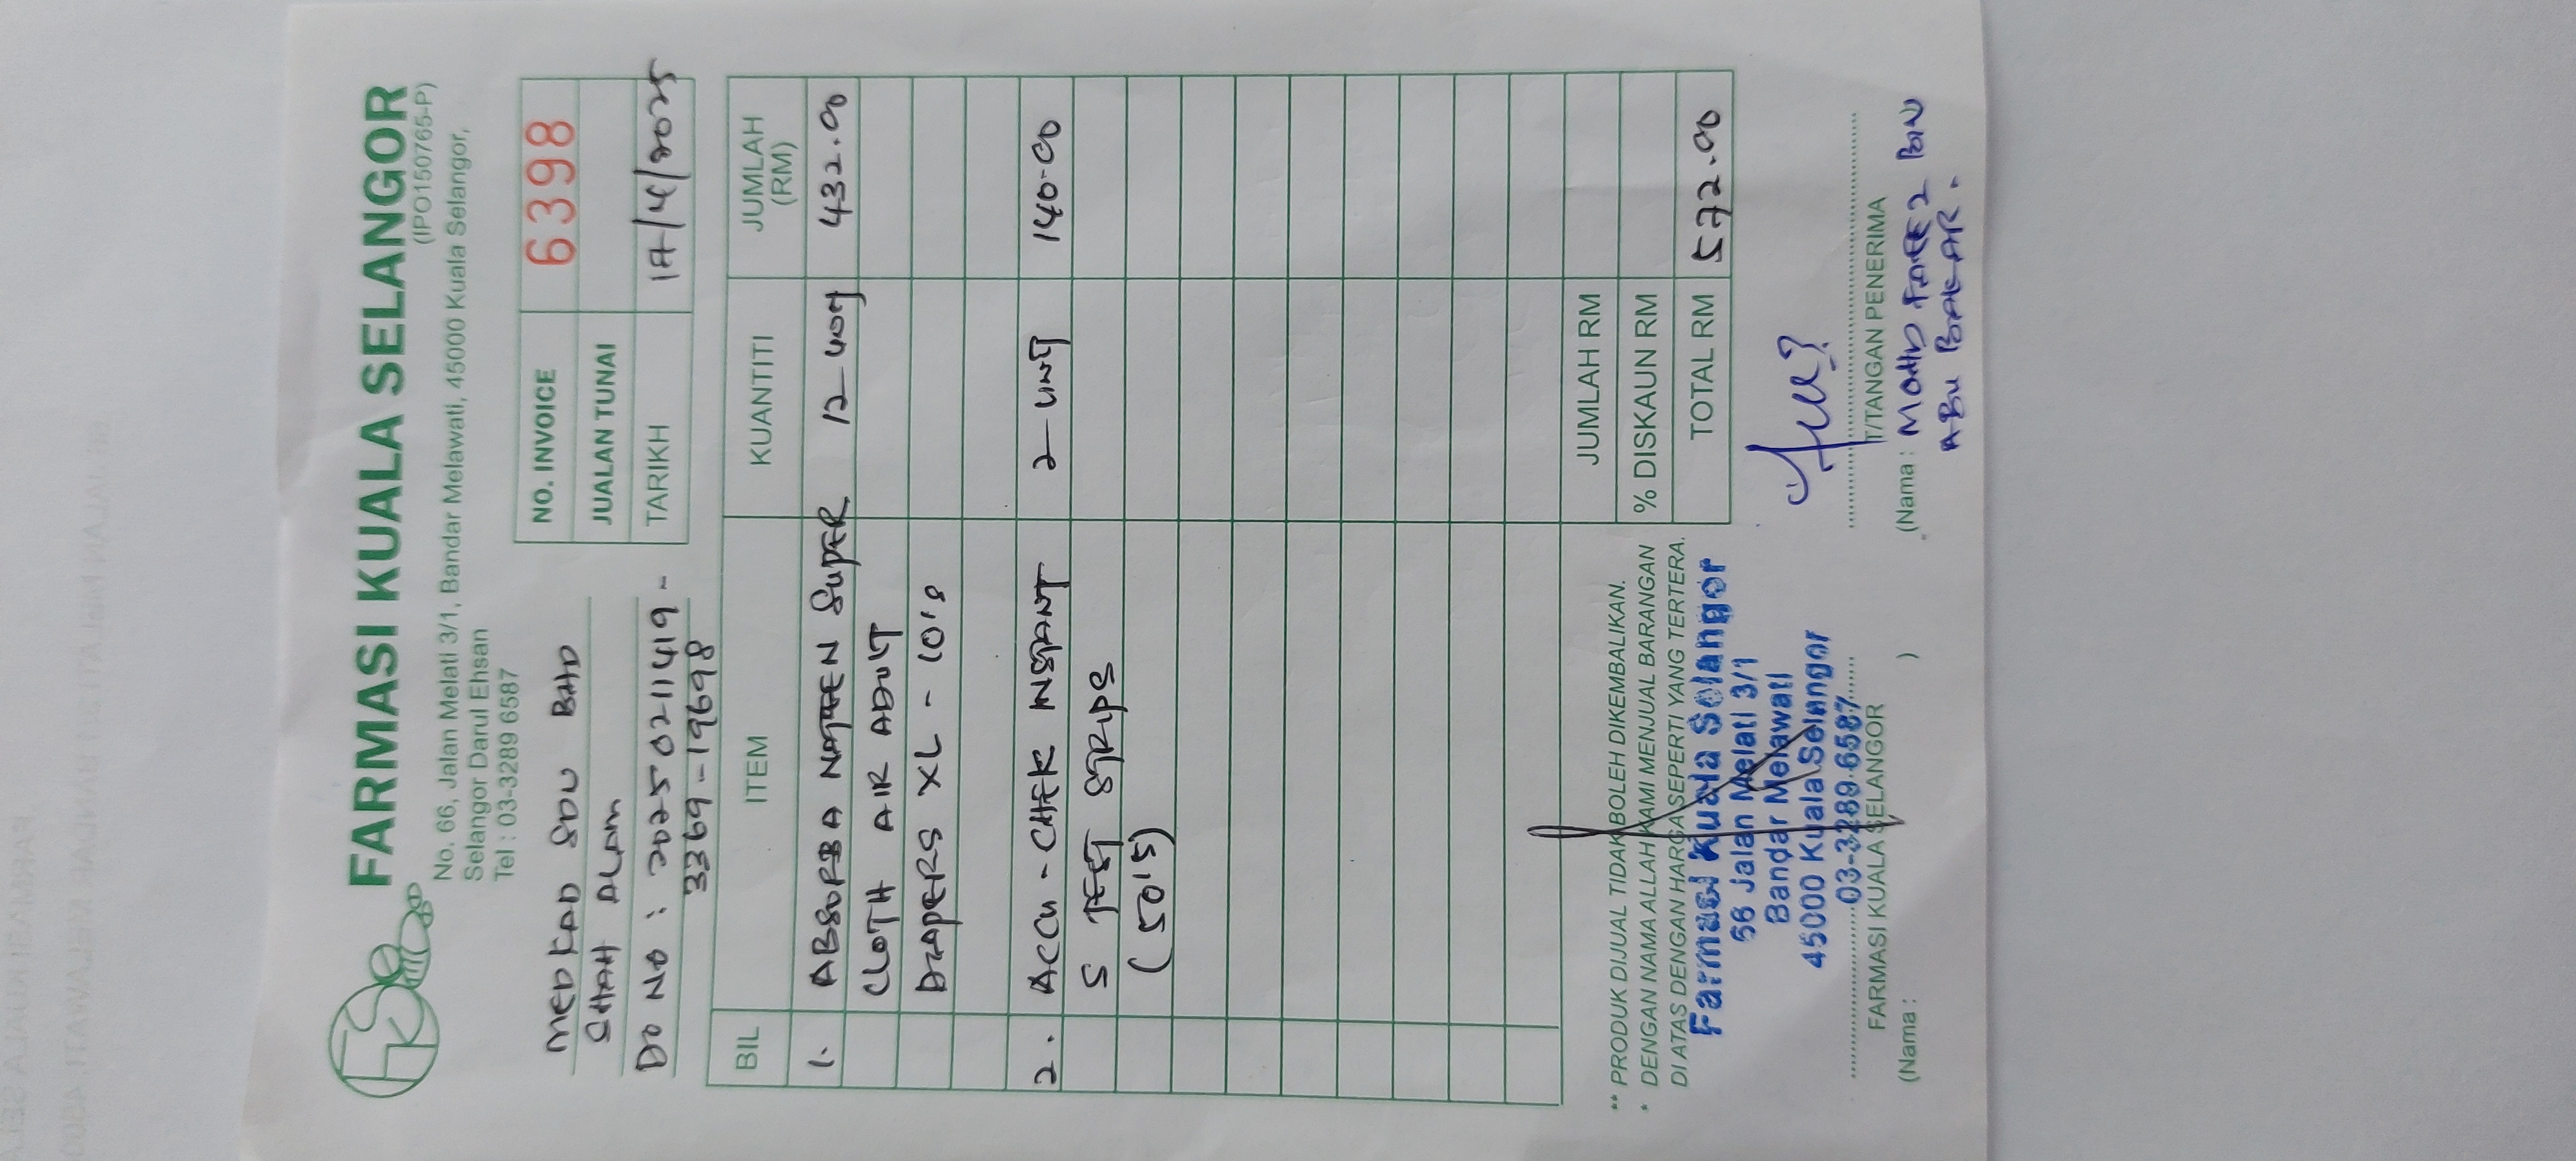 FARMASI KUALA SELANGOR
(IPO150765-P)
No. 66, Jalan Melati 3/1, Bandar Melawati, 45000 Kuala Selangor,
Selangor Darul Ehsan
Tel : 03-3289 6587
MEDKAD SDN BHD
SHAH ALAM
DO NO : 20250211419-
3369-19698
NO. INVOICE 6398
JUALAN TUNAI
TARIKH 17/4/2025
BIL ITEM KUANTITI JUMLAH
(RM)
1. ABSORBA NATEEN SUPER 12 unit 432.00
CLOTH AIR ADULT
DIAPERS XL - 10's
2. ACCU-CHEK INSTANT 2 UNIT 140.00
S TEST STRIPS
(50's)
JUMLAH RM
** PRODUK DIJUAL TIDAK BOLEH DIKEMBALIKAN.
* DENGAN NAMA ALLAH KAMI MENJUAL BARANGAN
DI ATAS DENGAN HARGA SEPERTI YANG TERTERA.
% DISKAUN RM
TOTAL RM 572.00
Farmasi Kuala Selangor
66 Jalan Melati 3/1
Bandar Melawati
45000 Kuala Selangor
03-3289 6587
FARMASI KUALA SELANGOR
(Nama : )
T/TANGAN PENERIMA
(Nama : MOHD FAEEZ BIN
ABU BAKAR.